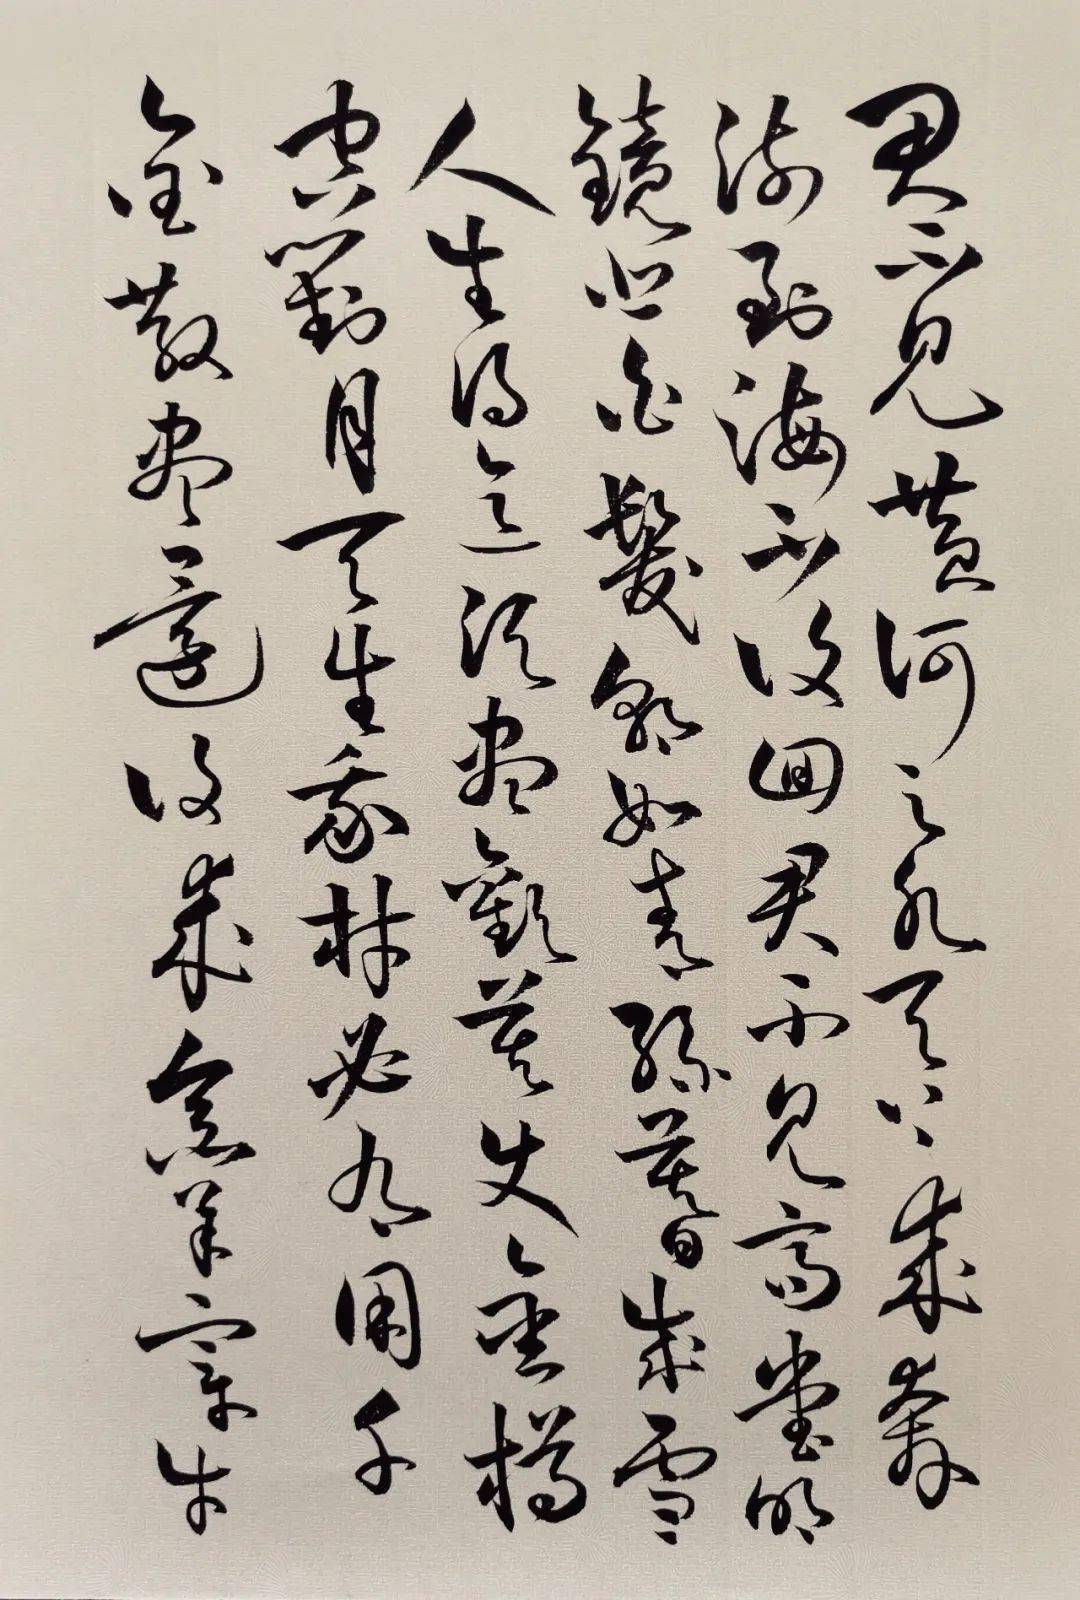 君不見黃河之水天上來奔
流到海不復回君不見高堂明
鏡悲白髮朝如青絲暮成雪
人生得意須盡歡莫使金樽
空對月天生我材必有用千
金散盡還復來烹羊宰牛